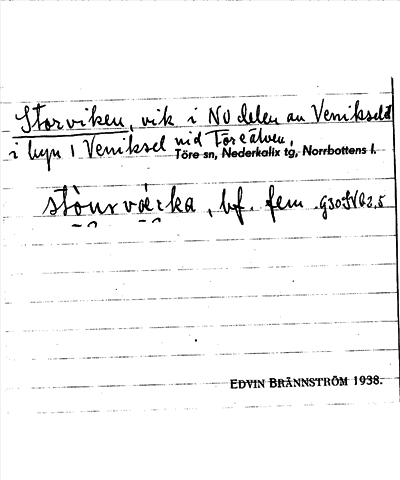 Storviken, vik i NO delen av Venikselet
i byn 1 Veniksel vid Töreälven,
Töre sn, Nederkalix tg, Norrbottens l.
bf. fem.
EDVIN BRÄNNSTRÖM 1938.